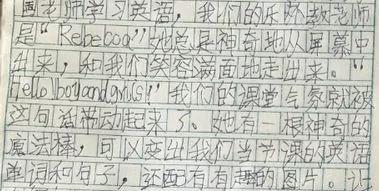 国老师学习英语，我们的乐外教老师
是“Rebecca”她总是神奇地从屏幕中
出来，和我们笑容满面地走出来。“
hello!boyandgrils!”我们的课堂气氛就被
这句话带动起来了、她有一根神奇的
魔法棒，可以变出我们当节课的英语
单词和句子，还配有有趣的图片。让